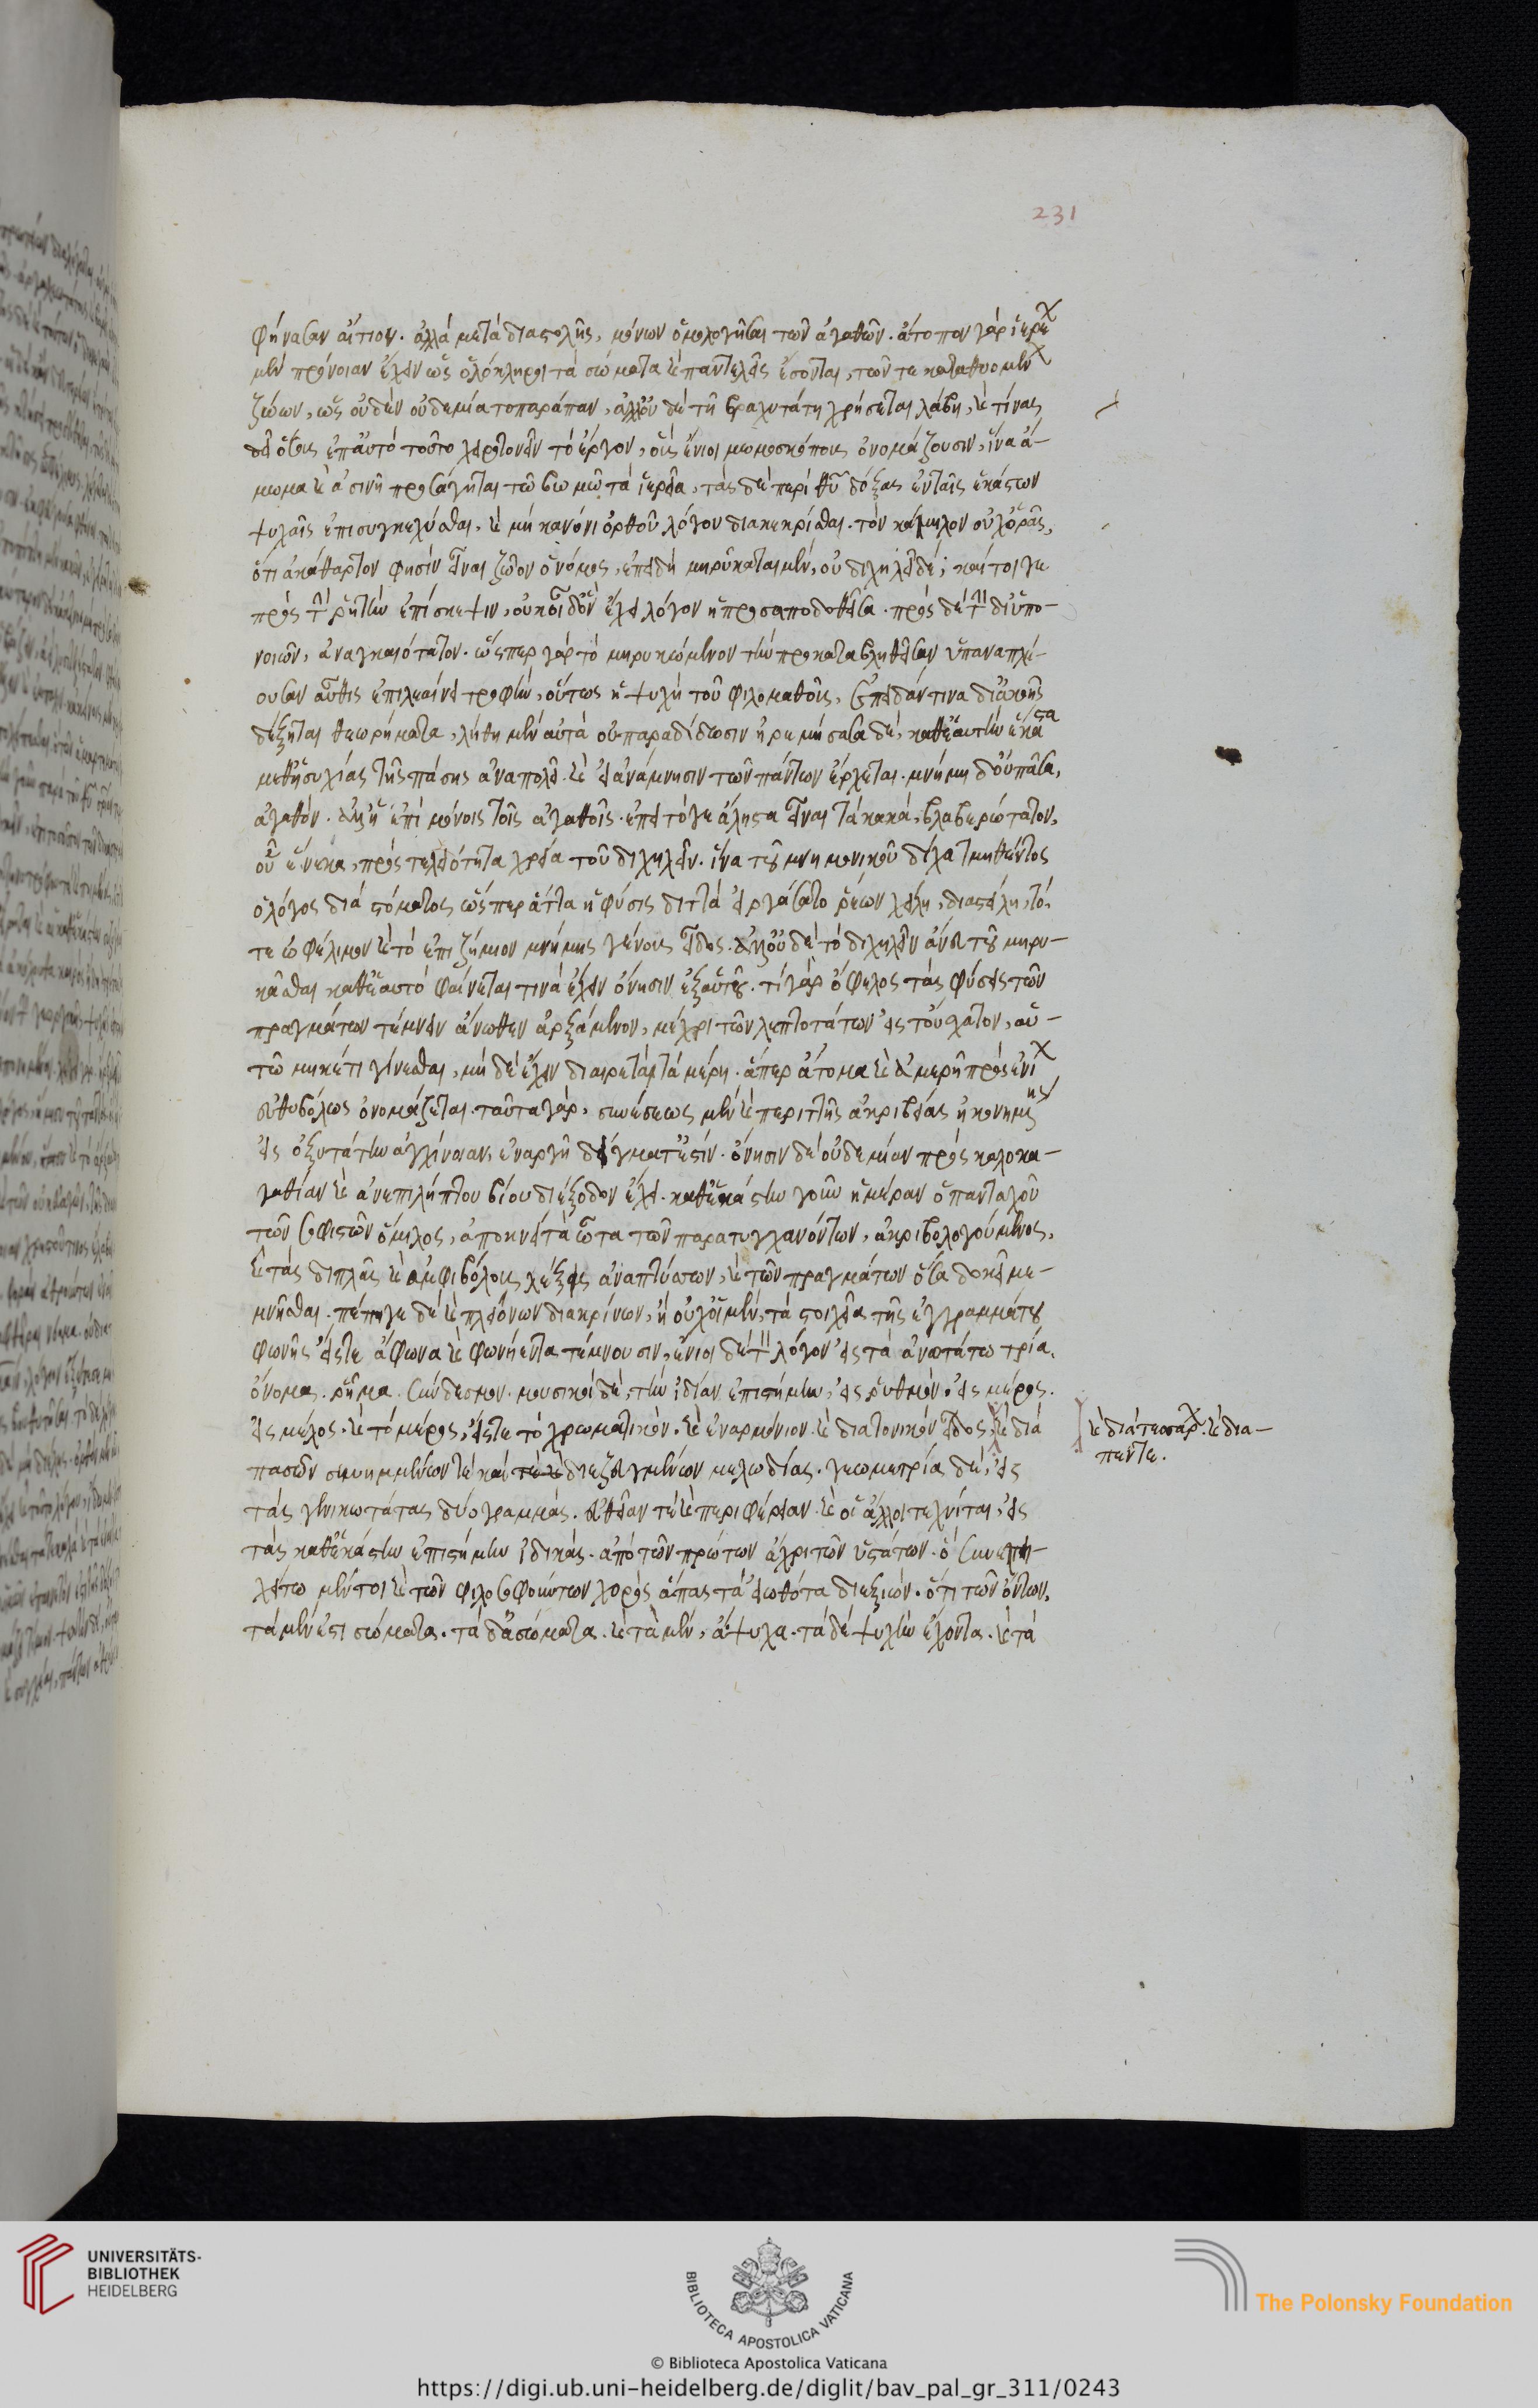 φήνασαν αἴτιον. ἀλλὰ μετὰ διαστολῆς, μόνων ὁμολογῆσαι τῶν ἀγαθῶν. ἄτοπον γὰρ ἱερέ
μὲν πρόνοιαν ἔχειν ὡς ὁλόκληροι τὰ σώματα καὶ παντελεῖς ἔσονται, τῶν τε καταθυομέν
ζώων, ὡς οὐδὲν οὐδεμία τοπαράπαν, ἀλλ' οὐδὲ τῇ βραχυτάτῃ χρήσεται λώβη, καὶ τίνας
δὲ ὅσους ἐπ' αὐτὸ τοῦτο χειροτονεῖν τὸ ἔργον, οὓς ἔνιοι μωμοσκόπους ὀνομάζουσιν, ἵνα ἄ-
μωμα καὶ ἀσινῆ προσάγηται τῶ βωμῶ τὰ ἱερεῖα, τὰς δὲ περὶ θυ δόξας ἐν ταῖς ἑκάστων
ψυχαῖς ἐπισυγκεχύσθαι, καὶ μὴ κανόνι ὀρθοῦ λόγου διακεκρίσθαι. τὸν κάμηλον οὐχ ὁρᾶς,
ὅτι ἀκάθαρτον φησὶν εἶναι ζῶον ὁ νόμος, ἐπειδὴ μηρύκαται μὲν, οὐ διχηλεῖ δέ; καίτοι γε
πρὸς τὴν ῥητὴν ἐπίσκεψιν, οὐκ οἶδ' ὃν ἔχει λόγον ἡ προσαποδοθεῖσα. πρὸς δὲ τὴν δι' ὑπο-
νοιῶν, ἀναγκαιότατον. ὥσπερ γὰρ τὸ μηρυκώμενον τὴν προκαταβληθεῖσαν ὑπαναπλέ-
ουσαν αὖθις ἐπιλεαίνει τροφήν, οὕτως ἡ ψυχὴ τοῦ φιλομαθοῦς, ἐπειδάν τινα δι' ἀκοῆς
δέξηται θεωρήματα, λήθη μὲν αὐτὰ οὐ παραδίδωσιν ἠρεμήσασα δὲ, καθ' ἑαυτὴν ἕκαστα
μεθ' ἡσυχίας τῆς πάσης ἀναπολεῖ. καὶ εἰς ἀνάμνησιν τῶν πάντων ἔρχεται. μνήμη δ' οὐ πᾶσα,
ἀγαθόν. ἀλλ' ἡ ἐπὶ μόνοις τοῖς ἀγαθοῖς. ἐπεὶ τόγε ἄληστα εἶναι τὰ κακὰ, βλαβερώτατον,
οὗ ἕνεκα, πρὸς τελειότητα χρεία τοῦ διχηλεῖν. ἵνα τοῦ μνημονικοῦ δίχα τμηθέντος
ὁ λόγος διὰ στόματος ὥσπερ ἅττα ἡ φύσις διττὰ εἰργάσατο ῥέων χείλη, διαστείλη, τό
τε ὠφέλιμον καὶ τὸ ἐπιζήμιον μνήμης γένους εἶδος. ἀλλ' οὐδὲ τὸ διχηλεῖν ἄνευ τοῦ μηρυ-
κᾶσθαι καθ' ἑαυτὸ φαίνεται τινὰ ἔχειν ὄνησιν ἐξ αὐτοῦ. τί γὰρ ὄφελος τὰς φύσεις τῶν
πραγμάτων τέμνειν ἄνωθεν ἀρξάμενον, μέχρι τῶν λεπτοτάτων εἰς τοὔσχατον, αὐ-
τῶ μηκέτι γίνεσθαι, μὴ δὲ ἔχειν διαιρετὰ τὰ μέρη. ἅπερ ἄτομα καὶ ἀμερῆ πρὸς ἐνί
εὐθυβόλως ὀνομάζεται. ταῦτα γὰρ, συνέσεως μὲν καὶ περιττῆς ἀκριβείας ἠκονημένης
εἰς ὀξυτάτην ἀγχίνοιαν, ἐναργῆ δείγματ' ἐστίν. ὄνησιν δὲ οὐδεμίαν πρὸς καλοκα-
γαθίαν καὶ ἀνεπιλήπτου βίου διέξοδον ἔχει. καθ' ἑκάστην γοῦν ἡμέραν ὁ πανταχοῦ
τῶν σοφιστῶν ὅμιλος, ἀποκναίει τὰ ὦτα τῶν παρατυγχανόντων, ἀκριβολογούμενος,
καὶ τὰς διπλᾶς καὶ ἀμφιβόλους λέξεις ἀναπτύσσων, καὶ τῶν πραγμάτων ὅσα δοκεῖ με-
μνῆσθαι. πέπηγε δὲ καὶ πλειόνων διακρίνων, ἢ οὐχ οἱ μὲν, τὰ στοιχεῖα τῆς ἐγγραμμάτου
φωνῆς εἴς τε ἄφωνα καὶ φωνήεντα τέμνουσιν, ἔνιοι δὲ τὸν λόγον εἰς τὰ ἀνωτάτω τρία.
ὄνομα. ῥῆμα. σύνδεσμον. μουσικοὶ δὲ, τὴν ἰδίαν ἐπιστήμην, εἰς ῥυθμὸν. εἰς μέρος.
εἰς μέλος. καὶ τὸ μέρος, εἴς τε τὸ χρωματικὸν. καὶ ἐναρμόνιον. καὶ διατονικὸν εἶδος, καὶ διὰ
καὶ διὰ τεσσάρ. καὶ δια-
πέντε.
πασῶν συνημμένων τὲ καὶ διεζευγμένων μελωδίας. γεωμετρία δὲ, εἰς
τὰς γενικωτάτας δύο γραμμὰς. εὐθεῖαν τὲ καὶ περιφέρειαν. καὶ οἱ ἄλλοι τεχνῖται, εἰς
τὰς καθ' ἑκάστην ἐπιστήμην ἰδικὰς. ἀπὸ τῶν πρώτων ἄχρι τῶν ὑστάτων. ὁ συνεπη-
χείτω μέντοι καὶ τῶν φιλοσοφούντων χορὸς ἅπας τὰ εἰωθότα διεξιών. ὅτι τῶν ὄντων,
τὰ μέν ἐστι σώματα. τὰ δ' ἀσώματα. καὶ τὰ μὲν, ἄψυχα. τὰ δὲ ψυχὴν ἔχοντα. καὶ τὰ
231
UNIVERSITÄTS-
BIBLIOTHEK
HEIDELBERG
BIBLIOTECA APOSTOLICA VATICANA
The Polonsky Foundation
© Biblioteca Apostolica Vaticana
https://digi.ub.uni-heidelberg.de/diglit/bav_pal_gr_311/0243